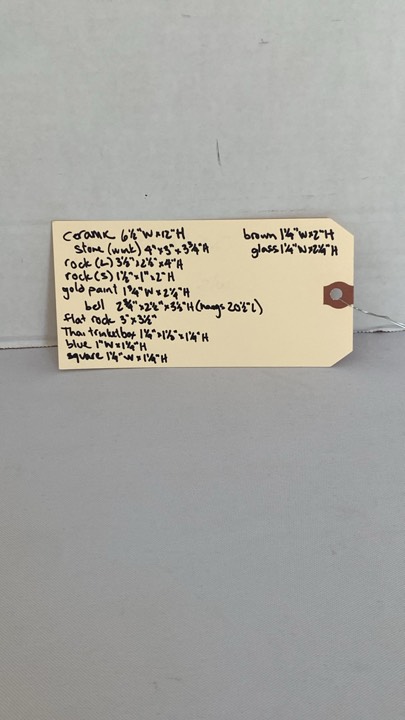 ceramic 6½"W x 12"H
stone (wink) 4" x 3" x 3¾"H
rock (L) 3½" x 2½" x 4"H
rock (S) 1½" x 1" x 2"H
gold paint 1¾"W x 2¼"H
bell 2¾" x 2½" x 3½"H (hangs 20½"L)
flat rock 3" x 3½"
Thai trinket box 1¼" x 1½" x 1¼"H
blue 1"W x 1¼"H
square 1¼"W x 1¼"H
brown 1¼"W x 2"H
glass 1¼"W x 2¼"H